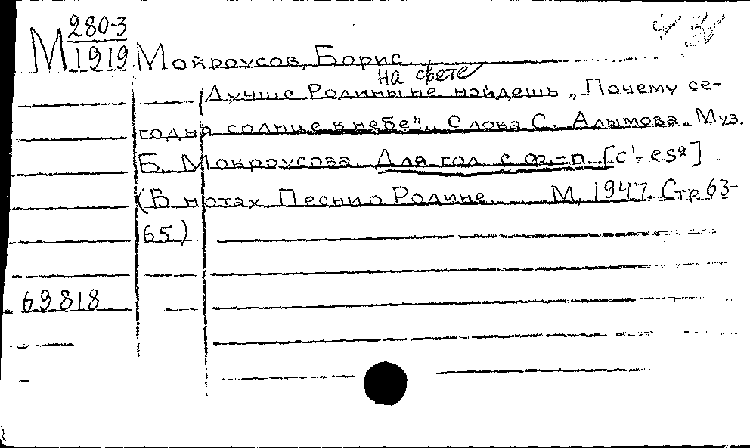 М 280-3
1919
Мокроусов, Борис
на свете
Лучше Родины не найдешь „Почему се-
годня солнце в небе". Слова С. Алымова. Муз.
Б. Мокроусова. Для гол. с ф.-п. [c¹- es²]
(В нотах Песни о Родине. М, 1947. Стр 63-
65)
69818